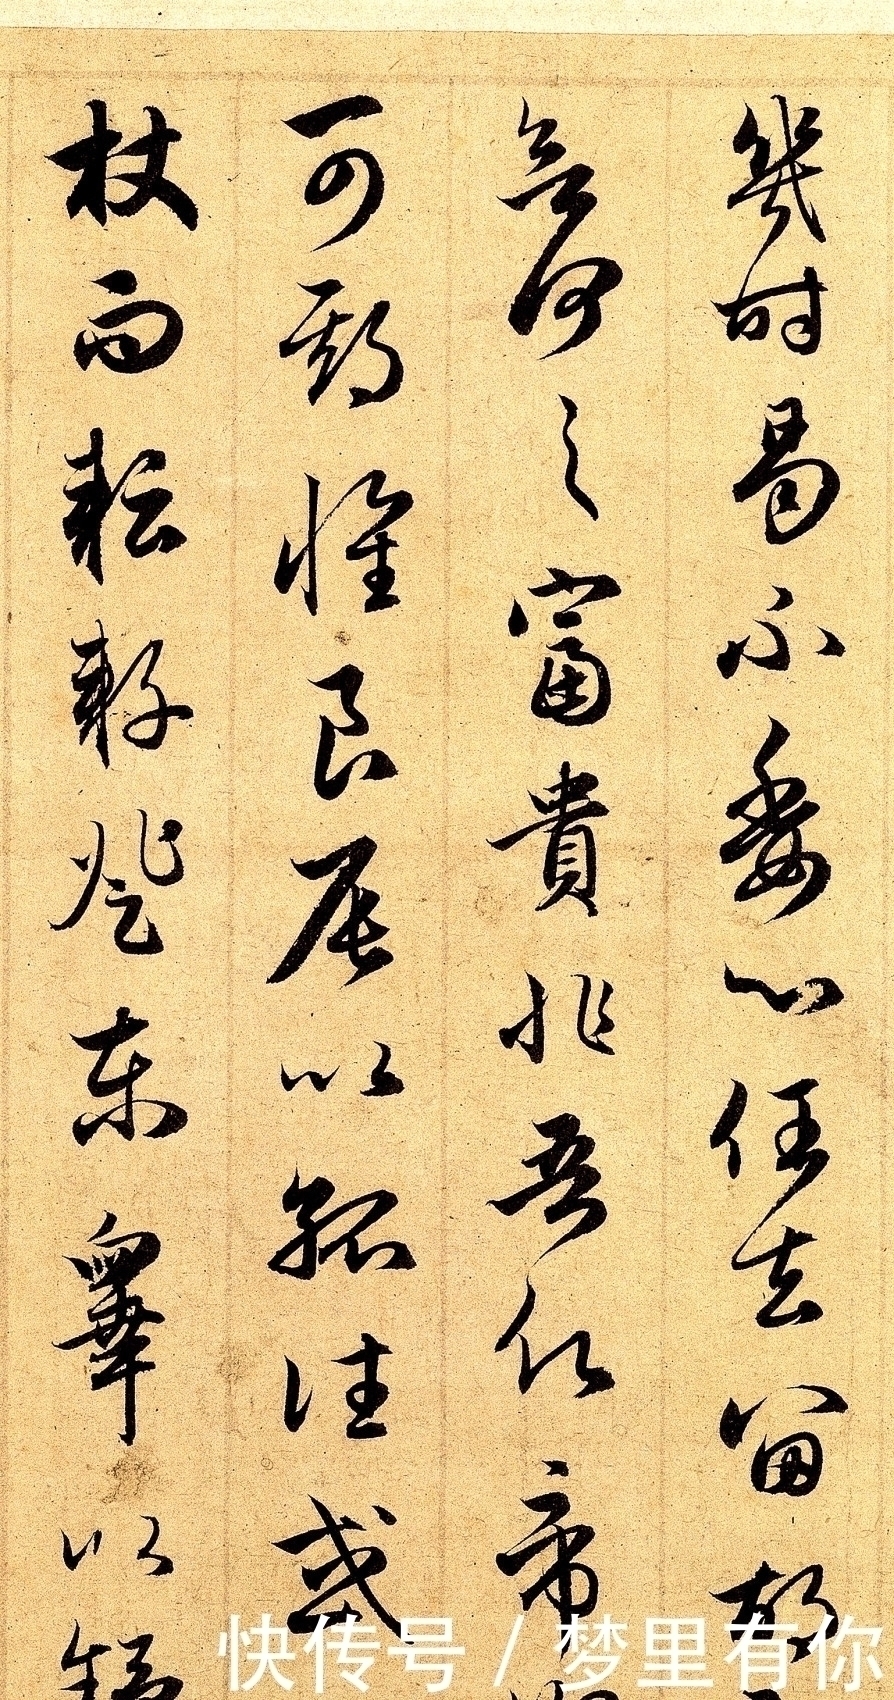 幾時曷不委心任去留胡
奚何之富貴非吾願帝
可期懷良辰以孤往或
杖而耘耔登東皋以舒
快传号/梦里有你